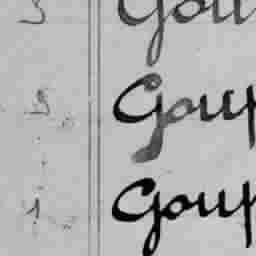 5 Gou
5 Goup
1 Goup